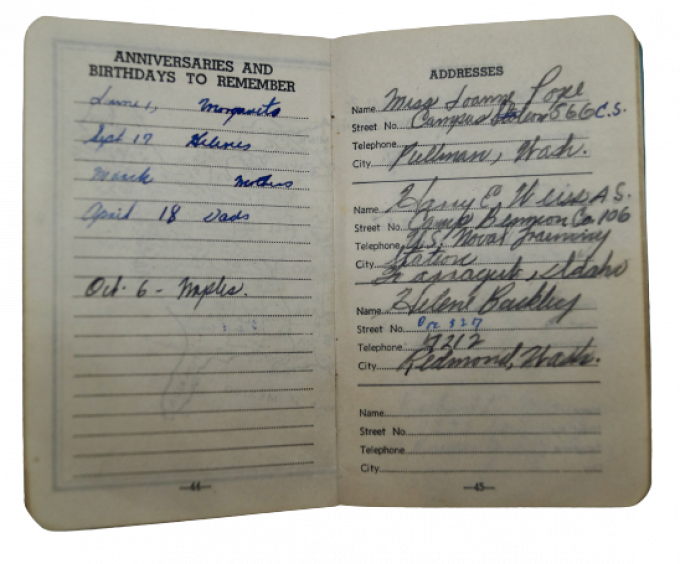 ANNIVERSARIES AND
BIRTHDAYS TO REMEMBER
June 1, Margarets
Sept 17 Helenes
March Mothers
April 18 Dads
Oct. 6 - Naples.
44
ADDRESSES
Name Miss Joanne Pope
Street No. Campus Station 566 C.S.
Telephone
City Pullman, Wash.
Name Harry E. Weiss A.S.
Street No. Camp Bennion Co 106
Telephone U.S. Naval Training
City Station
Farragut, Idaho
Name Helene Barkley
Street No. 327
Telephone 7212
City Redmond, Wash.
Name
Street No.
Telephone
City
45